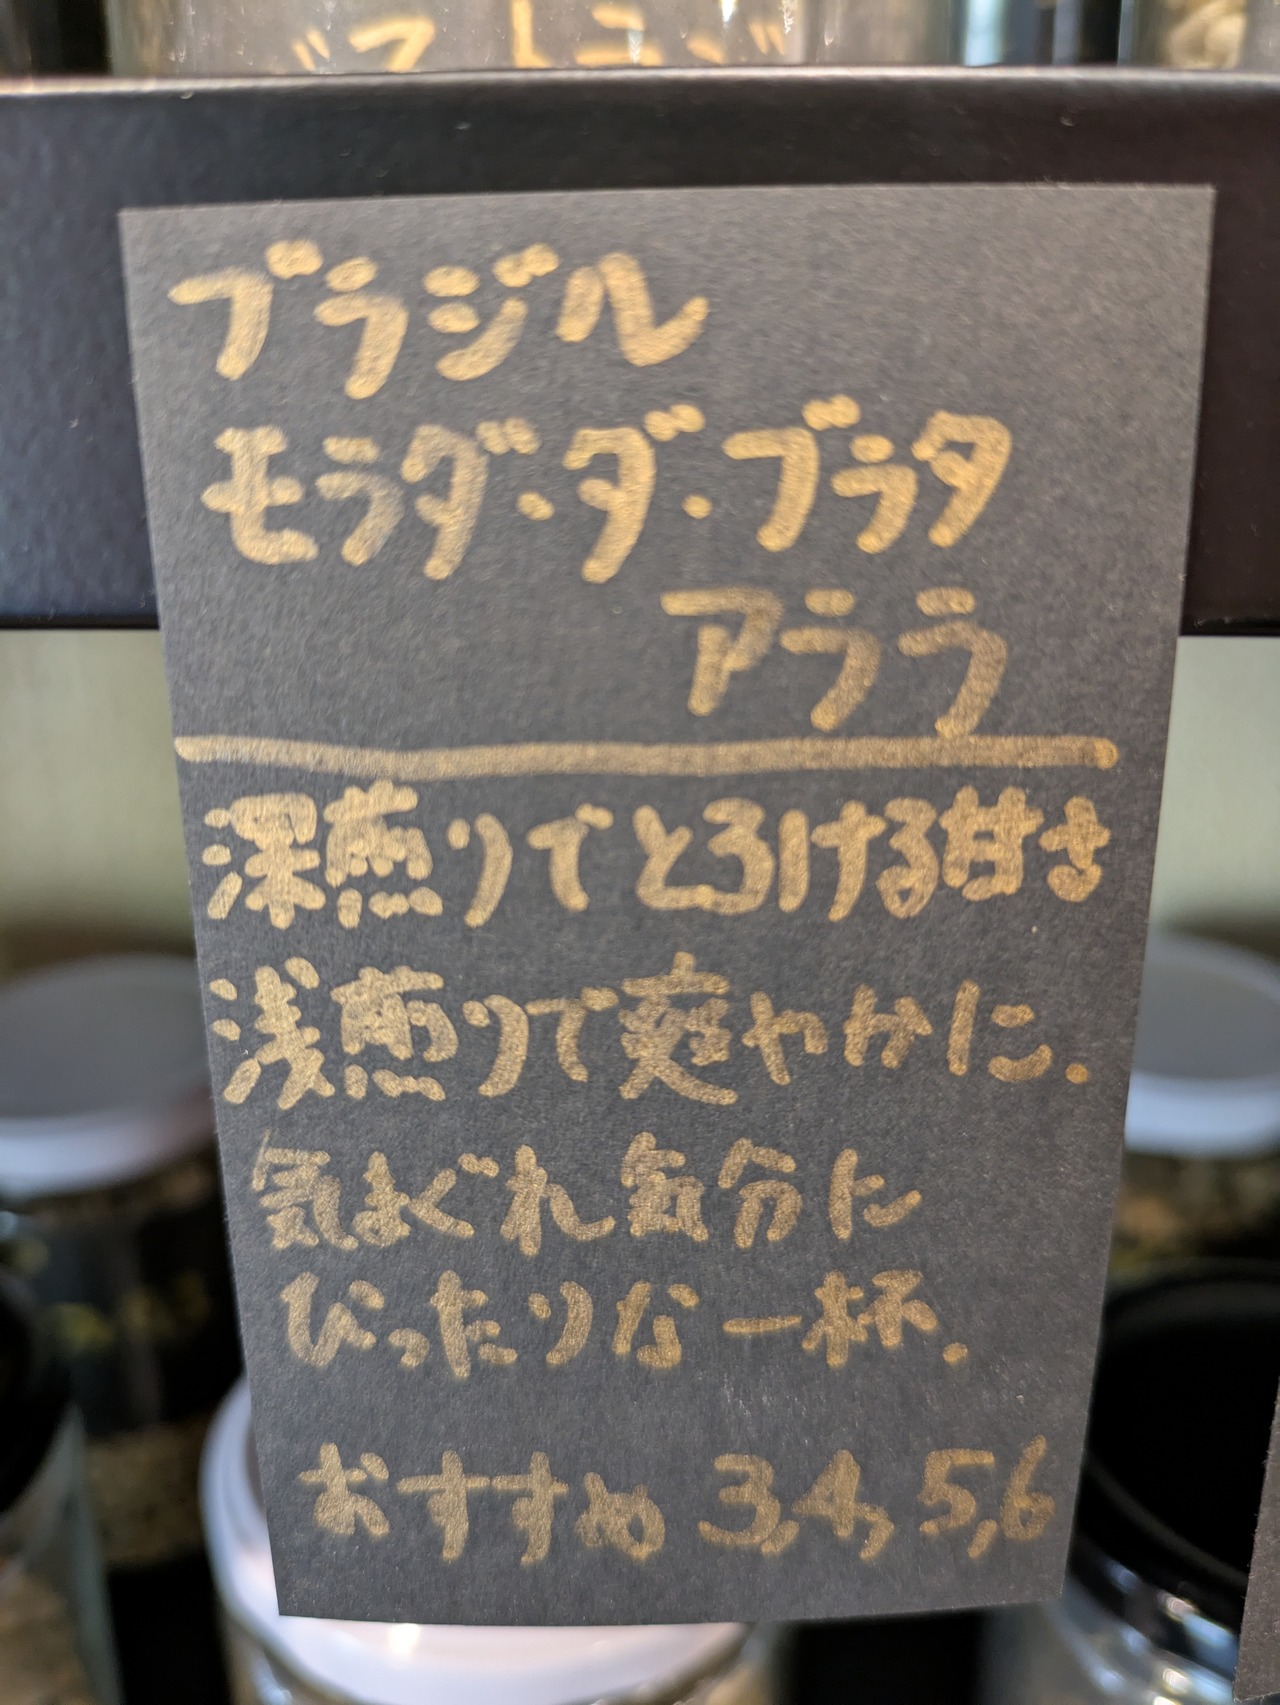 ブラジル
モラダ・ダ・ブラタ
アララ
深煎りでとろける甘さ
浅煎りで爽やかに.
気まぐれ気分に
ぴったりな一杯.
おすすめ 3,4,5,6